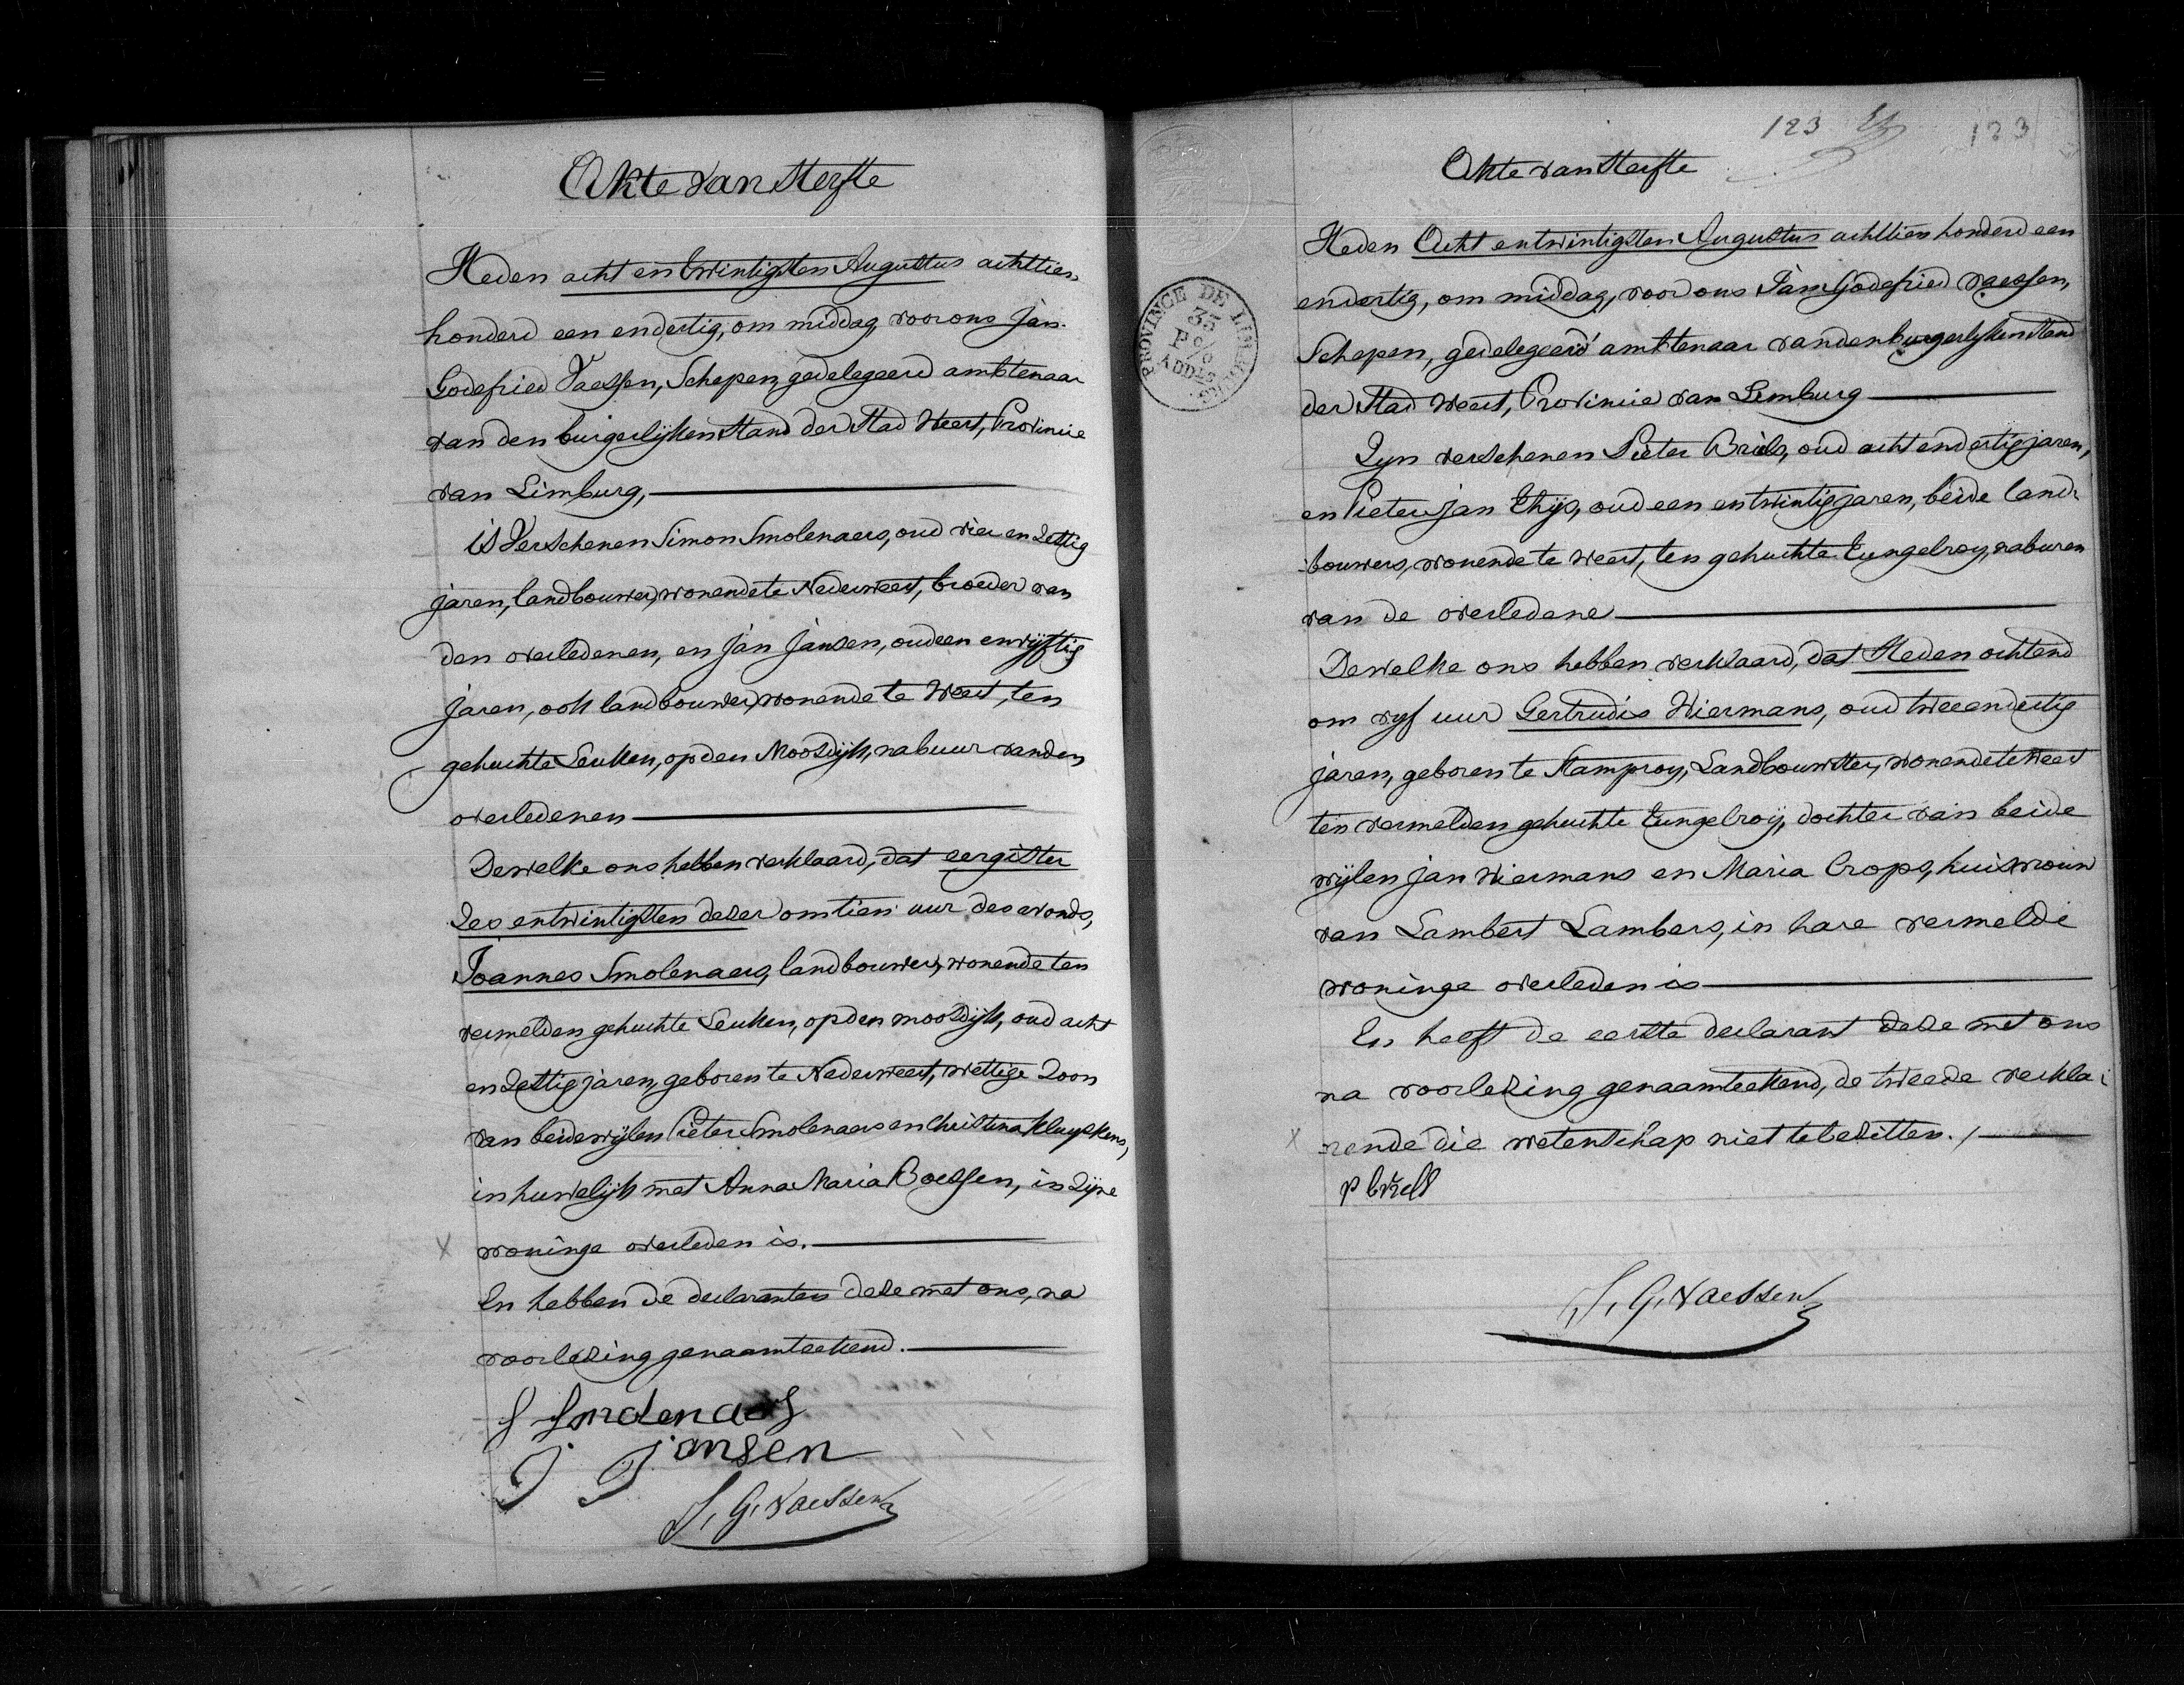 Akte van Sterfte
Heden acht en twintigsten Augustus achttien
honderd een en dertig, om middag voor ons Jan
Godefried Vaessen, Schepen, gedelegeerd ambtenaar
van den burgerlijken Stand der Stad Weert, Provincie
van Limburg,
is Verschenen Simon Smolenaers, oud vier en zettig
jaren, landbouwer, wonende te Nederweert, broeder van
den overledenen, en Jan Jansen, oud een en vijftig
jaren, ook landbouwer, wonende te Weert, ten
gehuchte Leuken, op den Moosdijk, nabuur van den
overledenen
Dewelke ons hebben verklaard, dat eergister
zes en twintigsten dezer om tien uur des avonds,
Joannes Smolenaers, landbouwer, wonende ten
vermelden gehuchte Leuken, op den moosdijk, oud acht
en zettig jaren, geboren te Nederweert, wettige zoon
van beide wijlen Pieter Smolenaers en Christina Kluyskens,
in huwelijk met Anna Maria Boessen, in zijne
X woninge overleden is.
En hebben de declaranten deze met ons, na
voorlezing genaamteekend.
S Smolenaers
J Jansen
J. G. Vaessen
123 123
Akte van Sterfte
PROVINCE DE LIMBOURG
35
P %
ADD.LS
Heden Acht en twintigsten Augustus achttien honderd een
en dertig, om middag, voor ons Jan Godefried Vaessen,
Schepen, gedelegeerd ambtenaar van den burgerlijken Stand
der Stad Weert, Provincie van Limburg
Zyn verschenen Pieter Briels, oud acht en dertig jaren,
en Pieter Jan Thijs, oud een en twintig jaren, beide land-
-bouwers, wonende te Weert, ten gehuchte Tungelroy, naburen
van de overledene
Dewelke ons hebben verklaard, dat Heden ochtend
om vyf uur Gertrudis Wiermans, oud twee en dertig
jaren, geboren te Stamproy, Landbouwster, wonende te Weert
ten vermelden gehuchte Tungelroy, dochter van beide
wijlen Jan Wiermans en Maria Crops, huisvrouw
van Lambert Lambers, in hare vermelde
woninge overleden is
En heeft de eerste declarant deze met ons
na voorlezing genaamteekend, de tweede verkla-
X -rende die wetenschap niet te bezitten. /
P briels
J. G. Vaessen